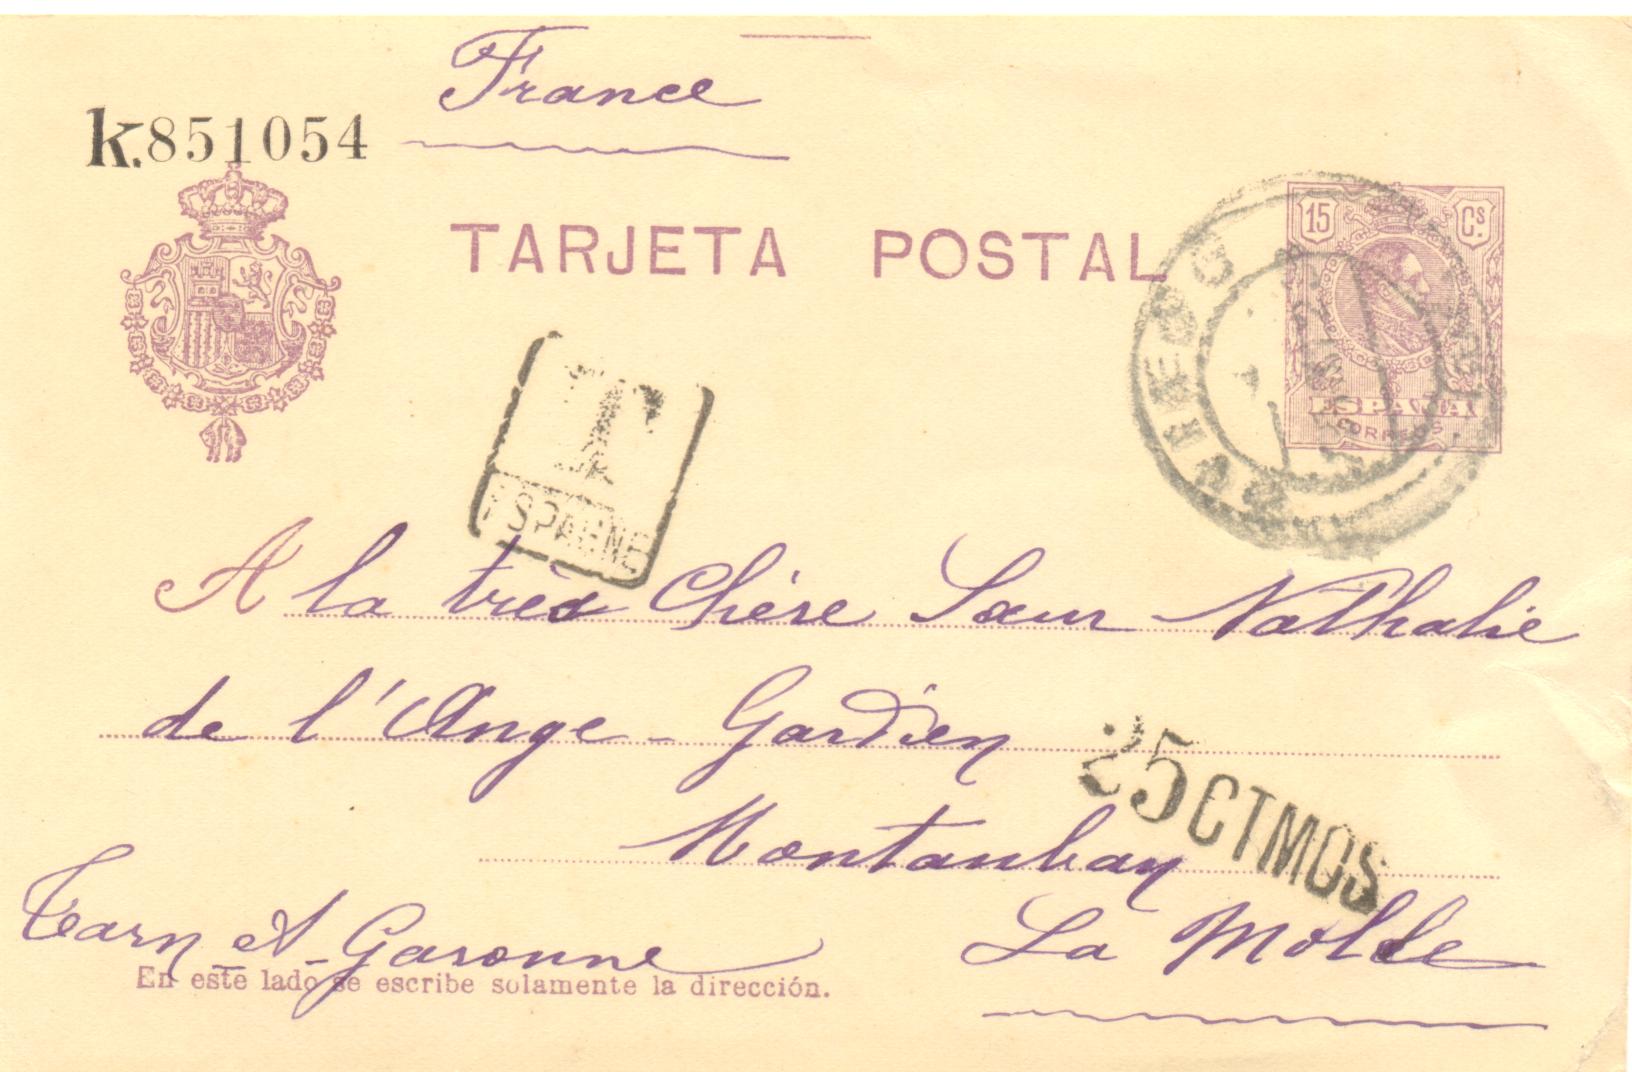 France
k.851054
TARJETA POSTAL
15 Cs
ESPAÑA
CORREOS
T
ESPAGNE
A la très Chère Sœur Nathalie
de l'Ange-Gardien
25 CTMOS
Montauban
Tarn-et-Garonne
La Molle
En este lado se escribe solamente la dirección.